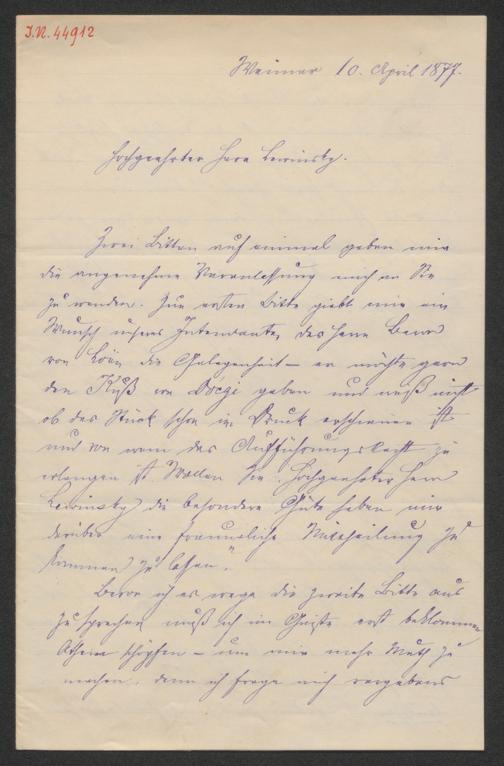 I.N. 44912
Weimar 10. April 1877.
Hochgeehrter Herr Lewinsky.
Zwei Bitten auf einmal geben mir
die angenehme Veranlassung mich an Sie
zu wenden. Zur ersten Bitte giebt mir ein
Wunsch unseres Intendanten, des Herrn Baron
von Loën die Gelegenheit – er möchte gern
den Kuß von Doczi geben und weiß nicht
ob das Stück schon im Druck erschienen ist
und von wem das Aufführungsrecht zu
erlangen ist. Wollen Sie, hochgeehrter Herr
Lewinsky die besondere Güte haben mir
darüber eine freundliche Mittheilung zu
kommen zu lassen?
Bevor ich es wage die zweite Bitte aus
zu sprechen muß ich im Geiste erst beklommen
Athem schöpfen – um mir mehr Muth zu
machen, denn ich frage mich vergebens